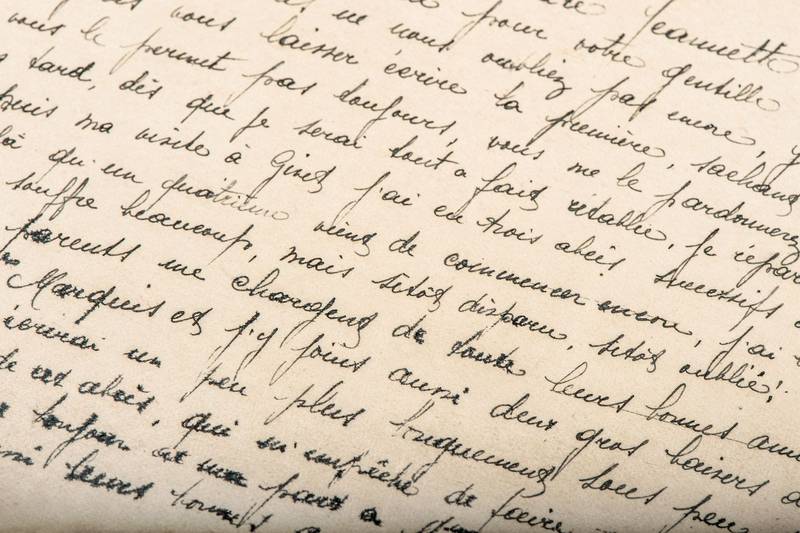 Jeannette
pour votre gentille
vous laisser ne nous oubliez pas encore,
vous le permet pas écrire la première, sachant
tard, dès que toujours, vous me le pardonnerez
puis ma visite je serai tout à fait rétablie, je répar
là qu'un quatrième à Giset j'ai eu trois abcès successifs
souffre beaucoup, vient de commencer encore, j'ai
parents me chargent mais sitôt disparu, sitôt oublié!
Marquis et j'y joins de toute leurs bonnes ami
écrirai un peu plus aussi deux gros baisers
de cet abcès, qui m'empêche longuement sous peu
toujours et ma part de faire
leurs bonnes